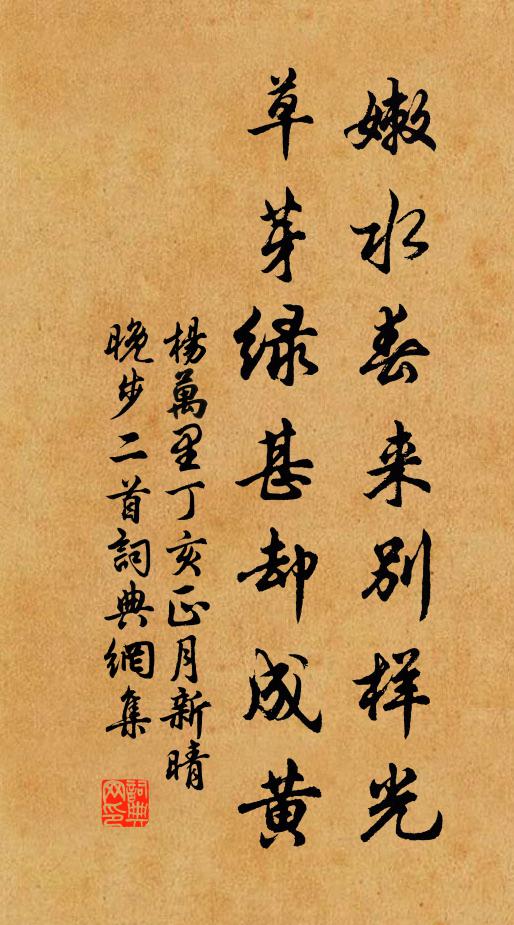 嫩水春来别样光
草芽绿甚却成黄
楊萬里丁亥正月新晴
晚步二首詞典網集
詞典
网印